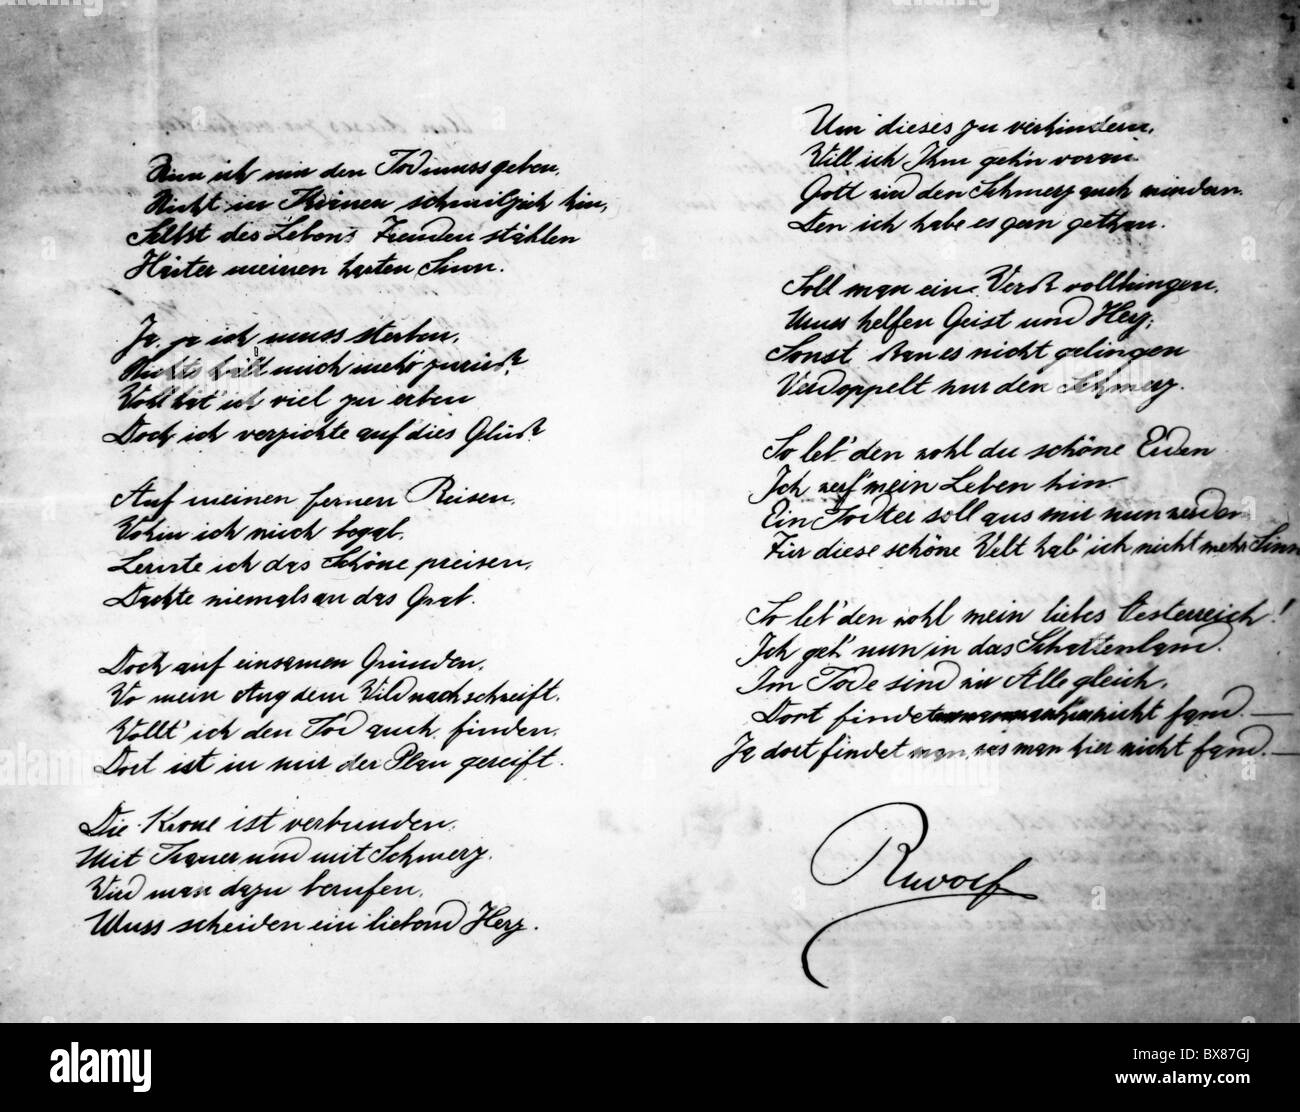 ich mir den Tod muss geben,
Nicht in Thränen schmilz ich hin,
Selbst des Lebens Freuden stählen
Härter meinen harten Sinn.
Ja, ja ich muss sterben,
Nichts hält mich mehr zurück?
Wohl hat ich viel zu erben
Doch ich verzichte auf dies Glück?
Auf meinen fernen Reisen,
Wohin ich mich begab,
Lernte ich das Schöne preisen,
Dachte niemals an das Grab.
Doch auf einsamen Gründen,
Wo mein Aug dem Wild nachschweift,
Wollt' ich den Tod auch finden,
Dort ist in mir der Plan gereift.
Die Krone ist verbunden,
Mit Trauer und mit Schmerz.
Wird man dazu berufen,
Muss scheiden ein liebend Herz.
Um dieses zu verhindern,
Will ich Ihm geh'n voran
Gott wird den Schmerz auch mindern
Den ich habe es gern gethan.
Soll man ein Werk vollbringen,
Muss helfen Geist und Herz,
Sonst kann es nicht gelingen
Verdoppelt nur den Schmerz.
So leb' den wohl du schöne Erden
Ich werf' mein Leben hin
Ein Todter soll aus mir nun werden
Für diese schöne Welt hab' ich nicht mehr Sinn
So leb' den wohl mein liebes Oesterreich!
Ich geh' nun in das Schattenland.
Im Tode sind wir Alle gleich,
Dort findet nicht fand. —
Ja dort findet man, was man hier nicht fand. —
Rudolf
alamy
alamy
alamy
Image ID: BX87GJ
www.alamy.com